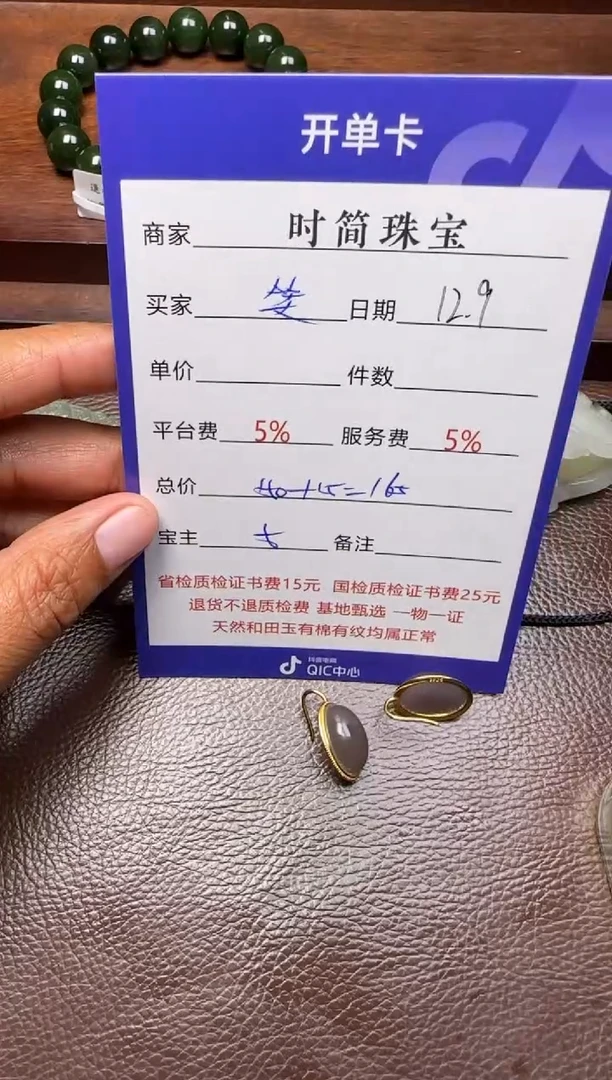 开单卡
商家 时简珠宝
买家 日期 12.9
单价 件数
平台费 5% 服务费 5%
总价 +15=165
宝主 备注
省检质检证书费15元 国检质检证书费25元
退货不退质检费 基地甄选 一物一证
天然和田玉有棉有纹均属正常
抖音电商
QIC中心